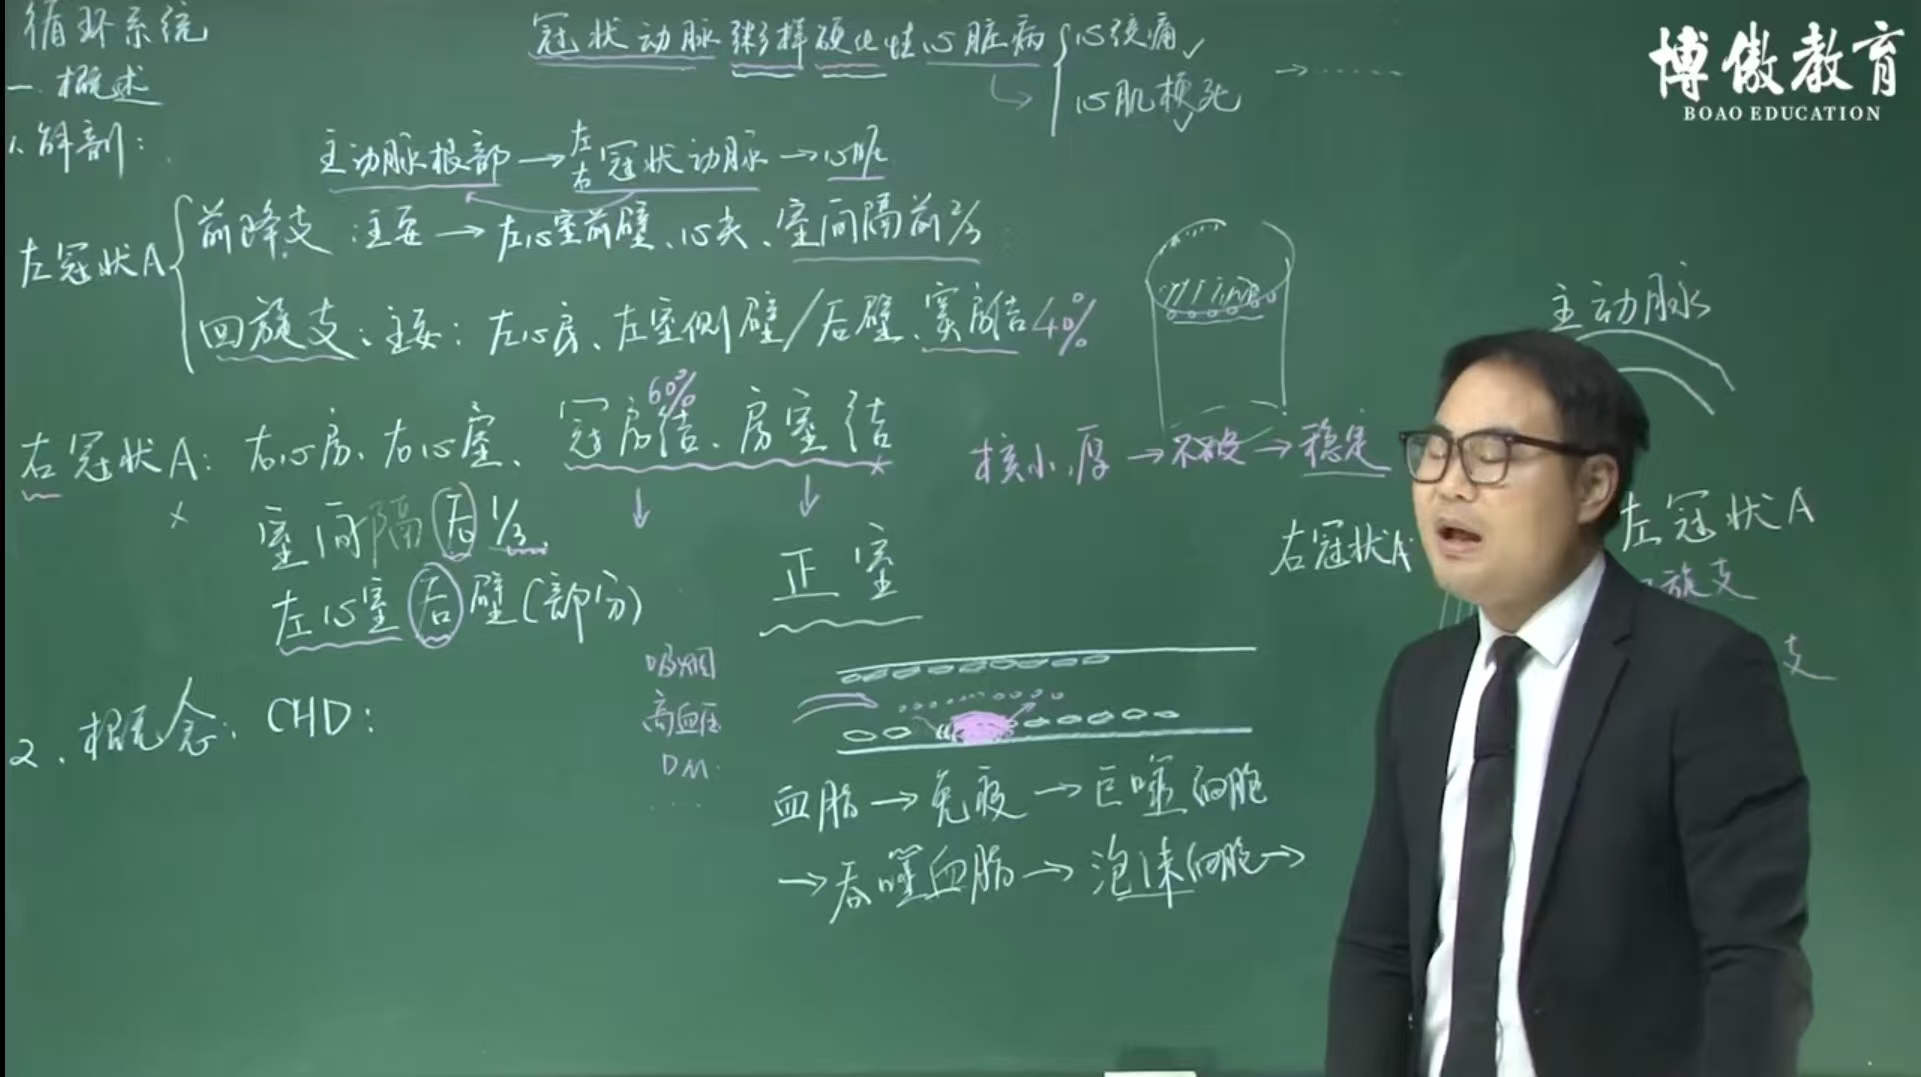 循环系统
一.概述
1.解剖:
冠状动脉粥样硬化性心脏病
心绞痛✓
心肌梗死✓
→……
主动脉根部→左右冠状动脉→心肌
左冠状A
前降支:主要→左心室前壁、心尖、室间隔前2/3
回旋支:主要:左心房、左室侧壁/后壁、窦房结40%
右冠状A:右心房、右心室、冠房结60%、房室结
×
↓ ↓
室间隔后1/3.
左心室后壁(部分)
正室
2.概念:CHD:
吸烟
高血压
DM.
....
血脂→免疫→巨噬细胞
→吞噬血脂→泡沫细胞→
核小,厚→不破→稳定
主动脉
右冠状A
左冠状A
旋支
支
博傲教育
BOAO EDUCATION